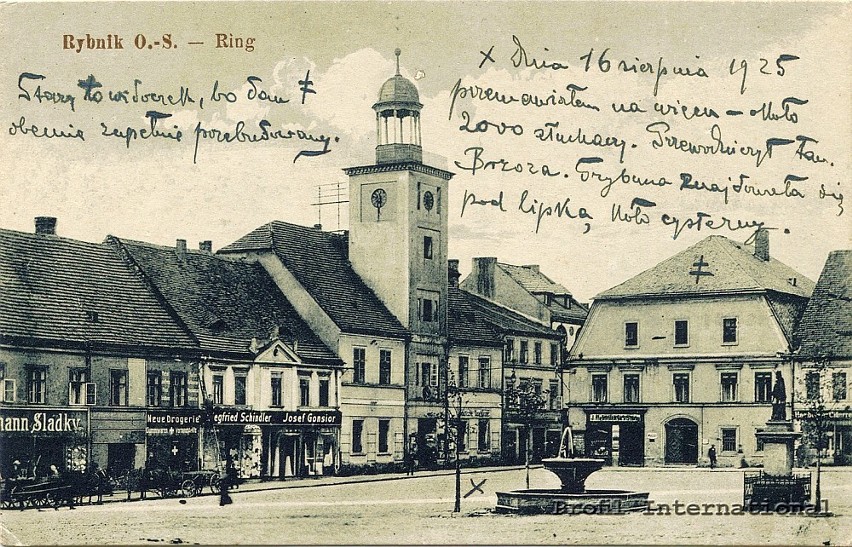 Rybnik O.-S. — Ring
Stary to widoczek, bo dom ‡
obecnie zupełnie przebudowany.
× Dnia 16 sierpnia 1925
przemawiałem na wiecu – około
2000 słuchaczy. Przewodniczył tam
Brzoza. Trybuna znajdowała się
pod lipką, koło cysterny.
mann Sladky
Neue Drogerie
Siegfried Schindler
Josef Gonsior
×
Profil International